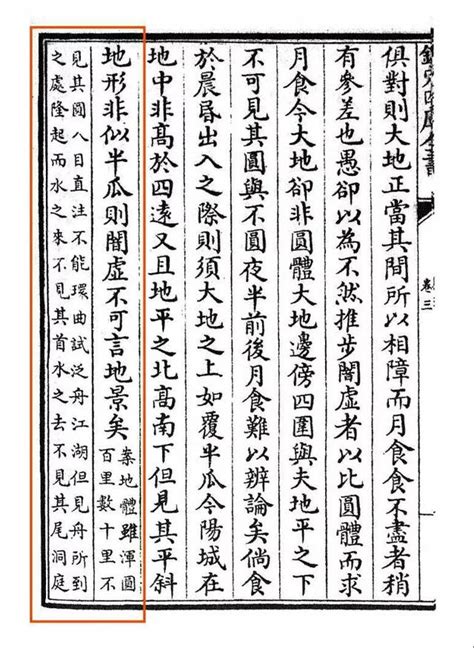 欽定四庫全書
卷三
俱對則大地正當其間所以相障而月食食不盡者稍
有參差也愚卻以為不然推步闇虛者以比圓體而求
月食今大地卻非圓體大地邊傍四圍與夫地平之下
不可見其圓與不圓夜半前後月食難以辨論矣倘食
於晨昏出入之際則須大地之上如覆半瓜今陽城在
地中非高於四遠又且地平之北高南下但見其平斜
地形非似半瓜則闇虛不可言地景矣
案地體雖渾圓
百里數十里不
見其圓人目直注不能環曲試泛舟江湖但見舟所到
之處隆起而水之來不見其首水之去不見其尾洞庭